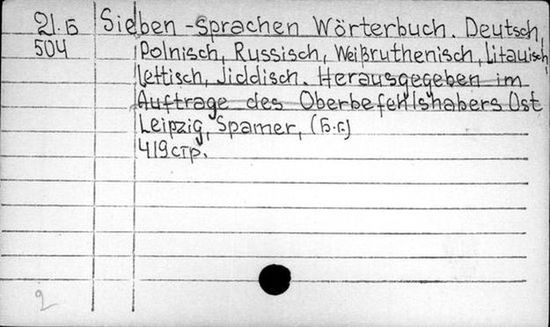 21.Б Sieben-sprachen Wörterbuch. Deutsch,
504 Polnisch, Russisch, Weißruthenisch, Litauisch
Lettisch, Jiddisch. Herausgegeben im
Auftrage des Oberbefehlshabers Ost
Leipzig, Spamer, (Б.г.)
419 стр.
2